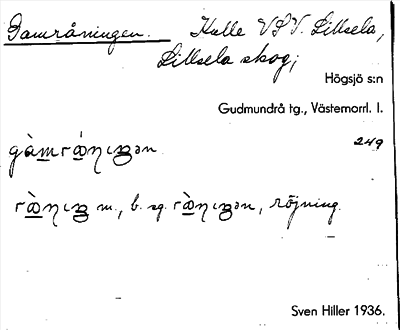 Gamråningen. Kulle VSV. Lillsela,
Lillsela skog;
Högsjö s:n
Gudmundrå tg., Västernorrl. l.
249
m., b. sg. röjning.
Sven Hiller 1936.